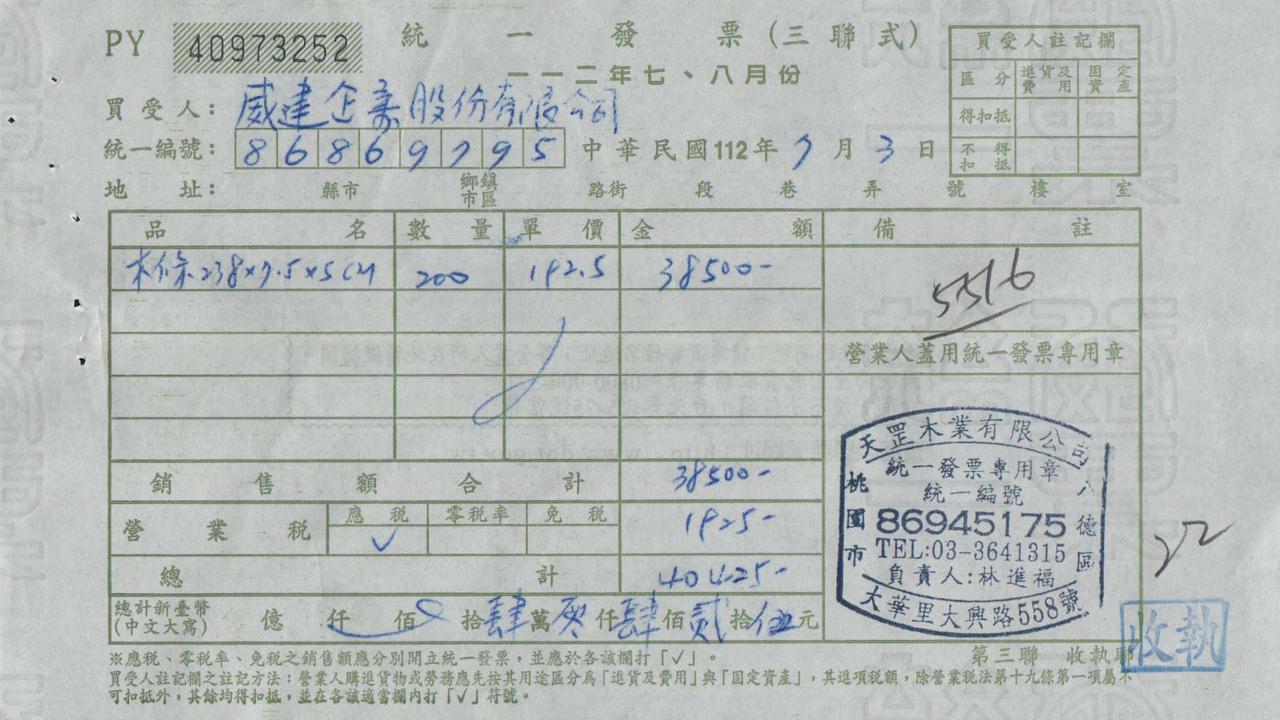 PY 40973252 統一發票(三聯式)
一一二年七、八月份
買受人註記欄
區分 進貨及費用 固定資產
得扣抵
不得扣抵
買受人: 威建企業股份有限公司
統一編號: 86869795 中華民國112年7月3日
地址: 縣市 鄉鎮市區 路街 段 巷 弄 號 樓 室
品名 數量 單價 金額 備註
木條238×7.5×5CM 200 192.5 38500-
5516
營業人蓋用統一發票專用章
銷售額合計 38500-
營業稅 應稅 零稅率 免稅 1925-
✓
總計 40425-
總計新臺幣(中文大寫) 億 仟 佰 拾肆萬 仟肆佰貳拾伍元
天罡木業有限公司
統一發票專用章
統一編號
86945175
TEL:03-3641315
負責人:林進福
桃園市
八德區
大華里大興路558號
22
第三聯 收執聯
收執
※應稅、零稅率、免稅之銷售額應分別開立統一發票,並應於各該欄打「✓」。
買受人註記欄之註記方法:營業人購進貨物或勞務應先按其用途區分為「進貨及費用」與「固定資產」,其進項稅額,除營業稅法第十九條第一項屬不
可扣抵外,其餘均得扣抵,並在各該適當欄內打「✓」符號。